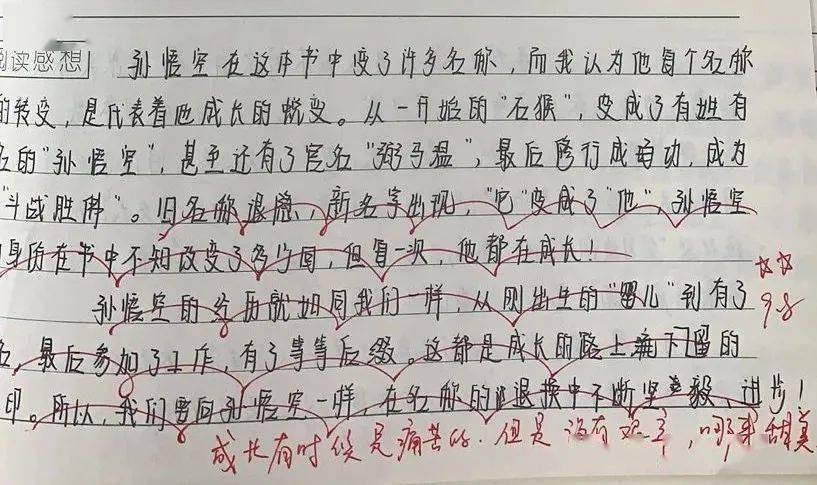 阅读感想 孙悟空在这本书中变了许多名称，而我认为他每个名称
的转变，是代表着他成长的蜕变。从一开始的“石猴”，变成了有姓有
名的“孙悟空”，甚至还有了官名“弼马温”，最后修行成功，成为
“斗战胜佛”。旧名称退隐，新名字出现，“它”变成了“他”，孙悟空
身份在书中不知改变了多少回，但每一次，他都在成长！
孙悟空的经历就如同我们一样，从刚出生的“婴儿”到有了
名，最后参加了工作，有了等等后缀。这都是成长的路上留下的
印。所以，我们要向孙悟空一样，在名称的退换中不断坚毅、进步！
98
成长有时候是痛苦的．但是没有，哪来甜美